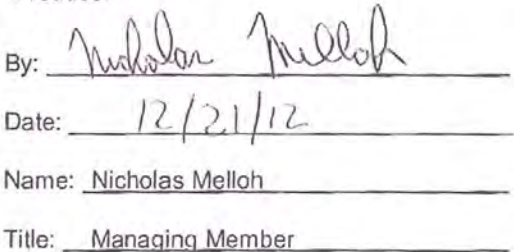 By: Nicholas Melloh
Date: 12/21/12
Name: Nicholas Melloh
Title: Managing Member